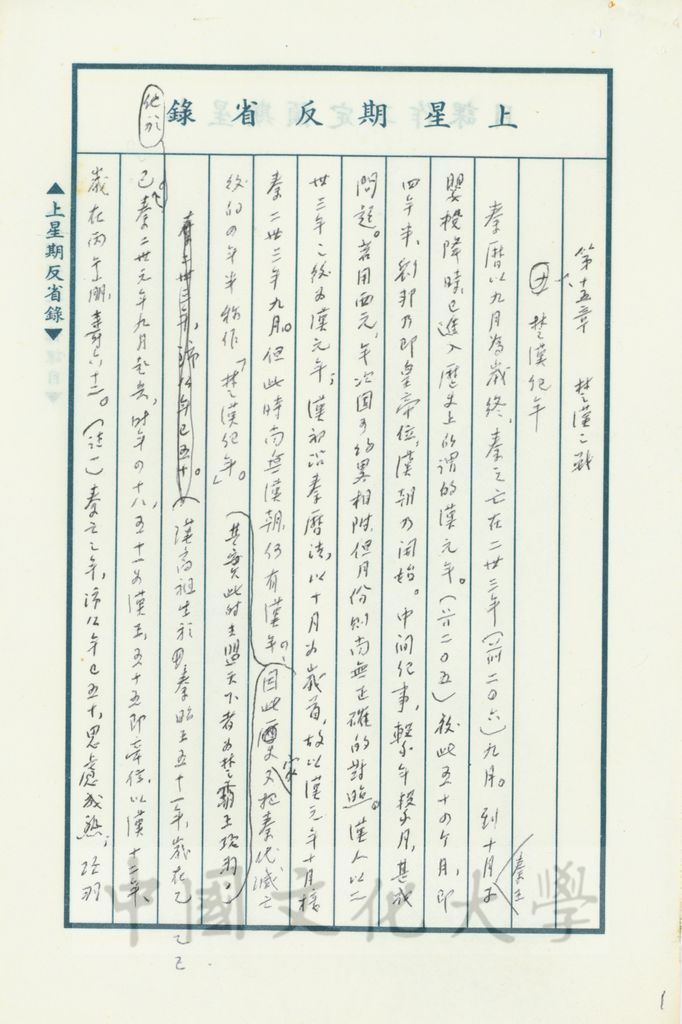 上星期反省錄
第十五章 楚漢之戰
楚漢紀年
秦曆以九月為歲終,秦之亡在二世三年(前二〇六)九月。到十月秦王子
嬰投降時,已進入歷史上所謂的漢元年。(前二〇五)後此五十四個月,即
四年半,劉邦乃即皇帝位,漢朝乃開始。中間紀事,繫年繫月,甚成
問題。若用西元,年次固可約畧相附,但月份則尚無正確的對照。漢人以二
世三年之後為漢元年;漢初沿秦曆法,以十月為歲首,故以漢元年十月接
秦二世三年九月。但此時尚無漢朝,何有漢年。因此歷史家又把秦代滅亡
後的四年半稱作「楚漢紀年」。(其實此時主盟天下者為楚霸王項羽。)
漢高祖生於秦昭王五十一年,歲在乙
巳
他於秦二世元年九月起兵,時年四十八,五十一為漢王,五十五即帝位,以漢十二年、
歲在丙午崩,壽六十二。(註一)秦亡之年,沛公年已五十,思慮成熟;項羽
▲上星期反省錄▼
中國文化大學
1